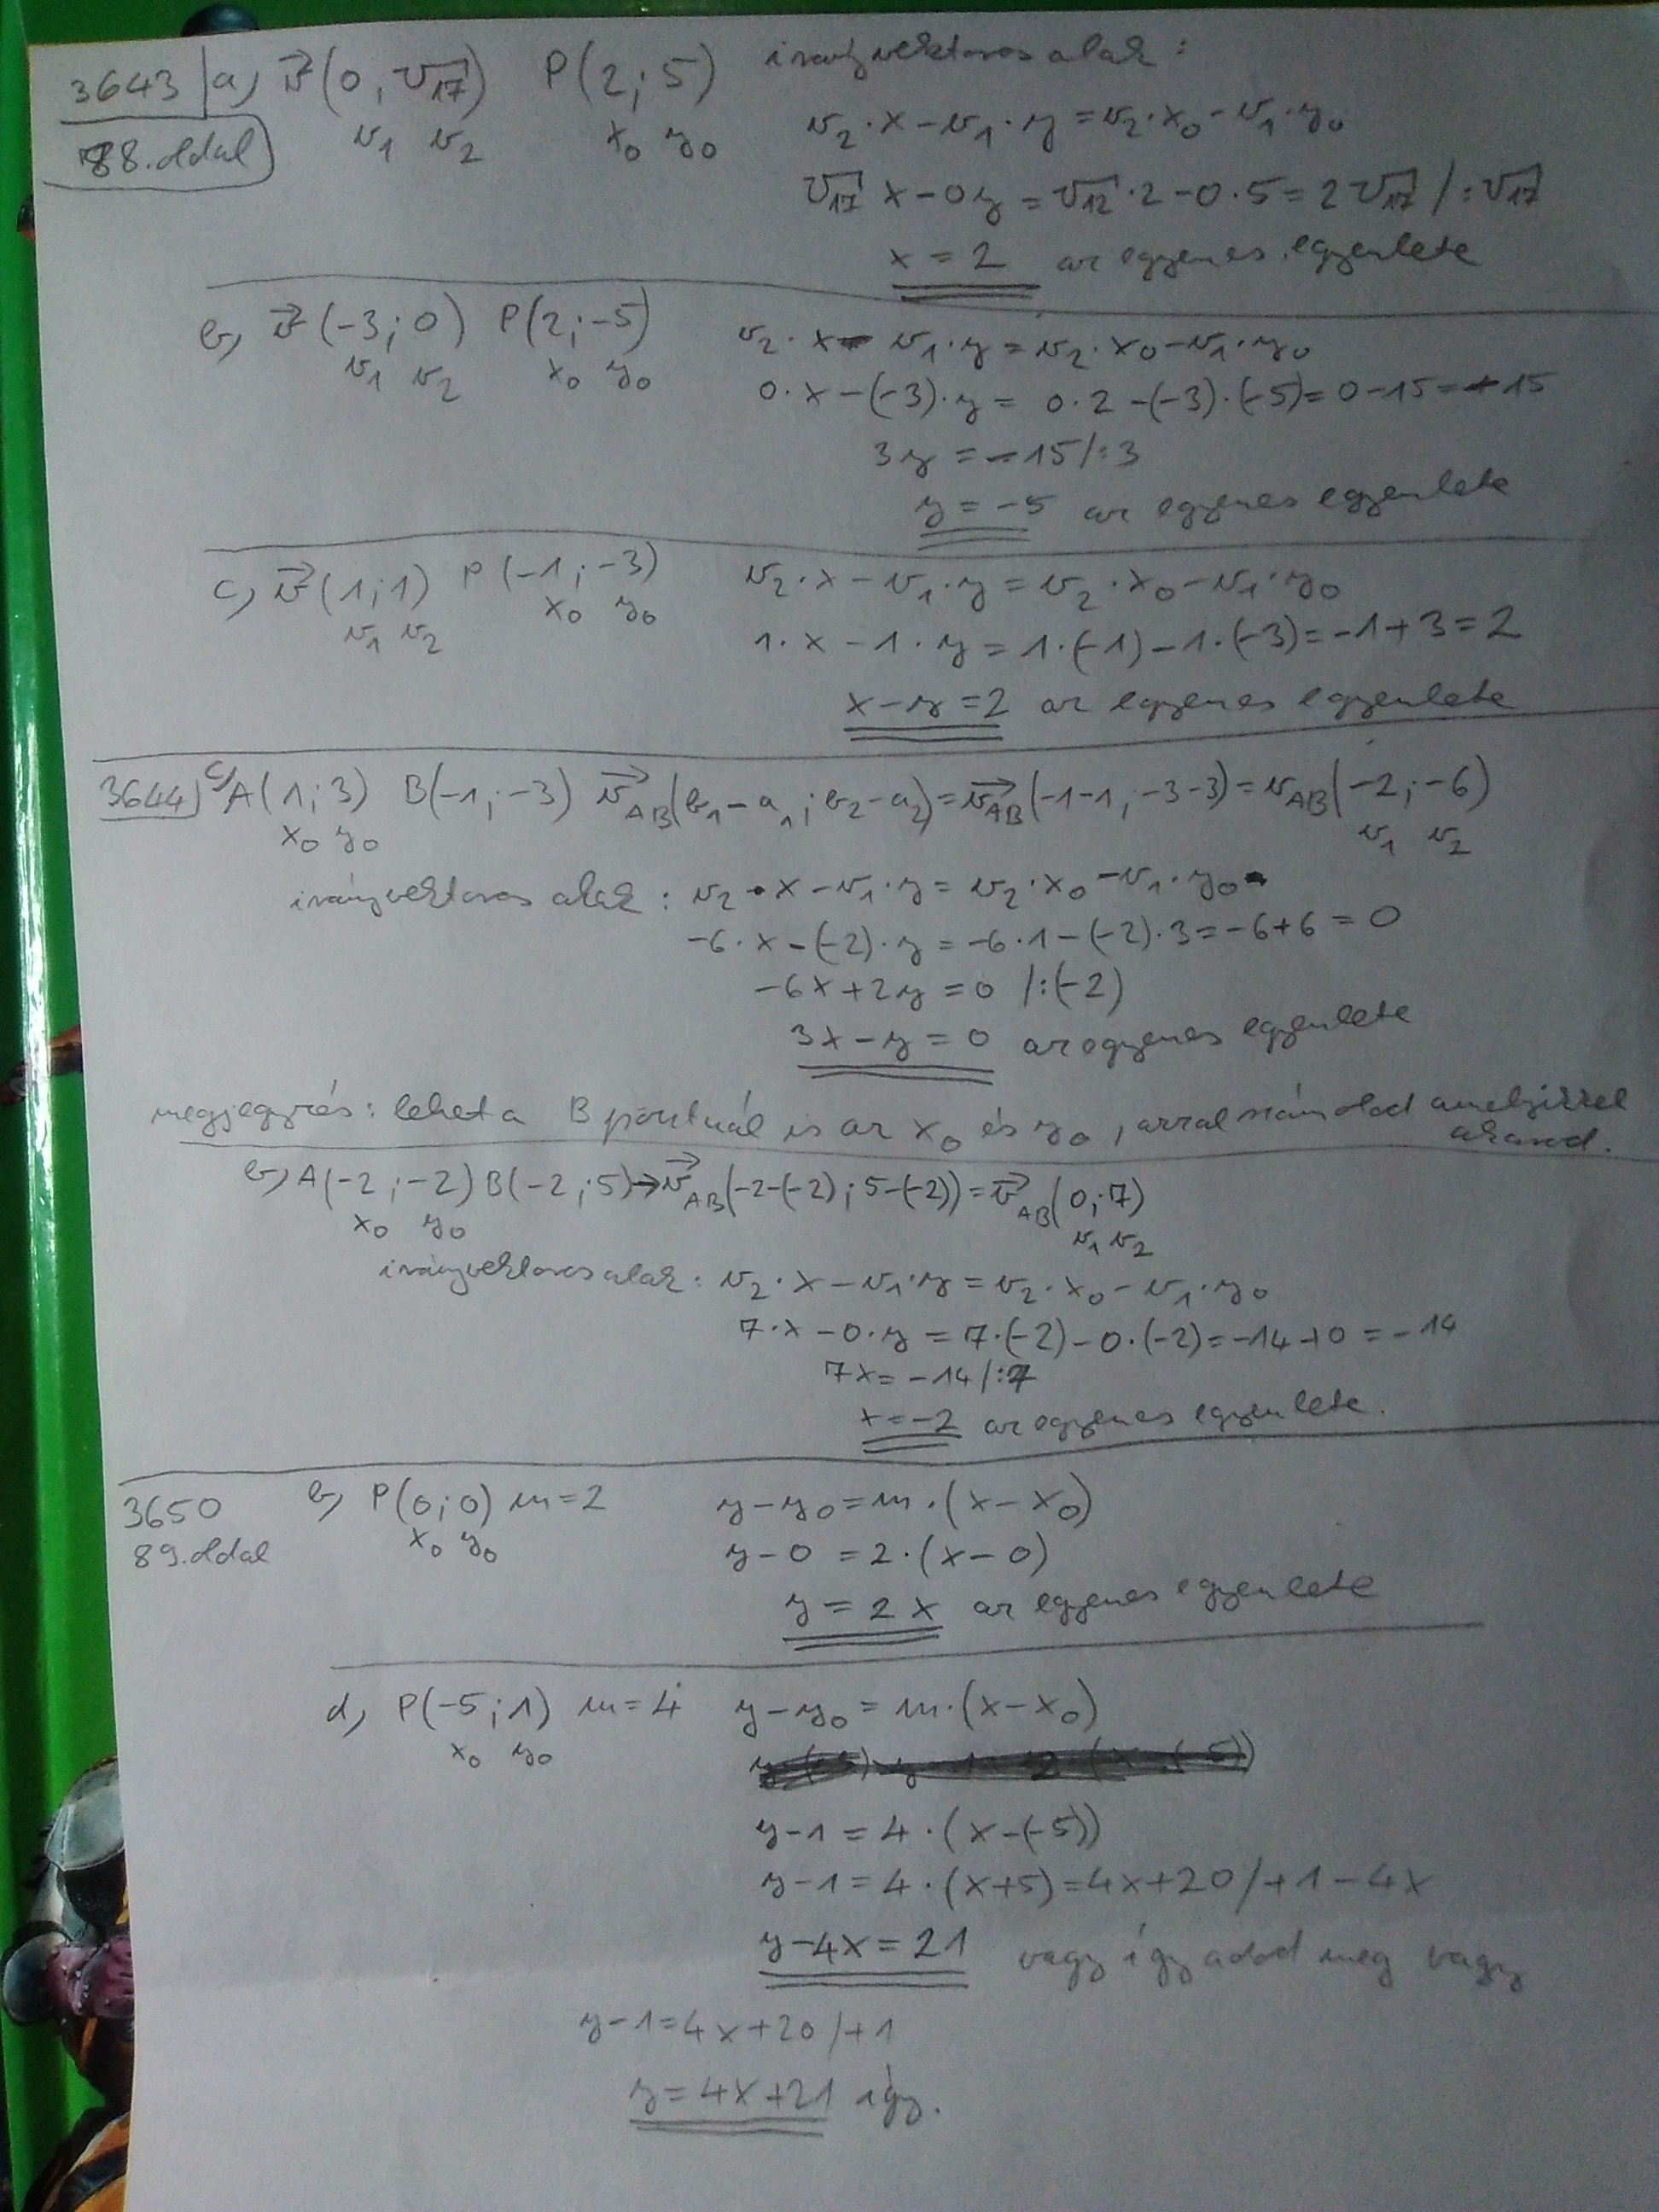 3643 a) v⃗(0; √17) P(2; 5) irányvektoros alak:
88.oldal v₁ v₂ x₀ y₀ v₂·x-v₁·y=v₂·x₀-v₁·y₀
√17 x-0y=√17·2-0·5=2√17 /:√17
x=2 az egyenes egyenlete
b) v⃗(-3; 0) P(2; -5) v₂·x-v₁·y=v₂·x₀-v₁·y₀
v₁ v₂ x₀ y₀ 0·x-(-3)·y=0·2-(-3)·(-5)=0-15=-15
3y=-15/:3
y=-5 az egyenes egyenlete
c) v⃗(1; 1) P(-1; -3) v₂·x-v₁·y=v₂·x₀-v₁·y₀
v₁ v₂ x₀ y₀ 1·x-1·y=1·(-1)-1·(-3)=-1+3=2
x-y=2 az egyenes egyenlete
3644) c) A(1; 3) B(-1; -3) v⃗AB(b₁-a₁; b₂-a₂)=v⃗AB(-1-1; -3-3)=vAB(-2; -6)
x₀ y₀ v₁ v₂
irányvektoros alak: v₂·x-v₁·y=v₂·x₀-v₁·y₀
-6·x-(-2)·y=-6·1-(-2)·3=-6+6=0
-6x+2y=0 /:(-2)
3x-y=0 az egyenes egyenlete
megjegyzés: lehet a B pontnál is az x₀ és y₀, azzal számolod amelyikkel
akarod.
b) A(-2; -2) B(-2; 5)→v⃗AB(-2-(-2); 5-(-2))=v⃗AB(0; 7)
x₀ y₀ v₁ v₂
irányvektoros alak: v₂·x-v₁·y=v₂·x₀-v₁·y₀
7·x-0·y=7·(-2)-0·(-2)=-14+0=-14
7x=-14/:7
x=-2 az egyenes egyenlete.
3650 b) P(0; 0) m=2 y-y₀=m·(x-x₀)
89.oldal x₀ y₀ y-0=2·(x-0)
y=2x az egyenes egyenlete
d) P(-5; 1) m=4 y-y₀=m·(x-x₀)
x₀ y₀
y-1=4·(x-(-5))
y-1=4·(x+5)=4x+20/+1-4x
y-4x=21 vagy így adod meg vagy
y-1=4x+20/+1
y=4x+21 így.